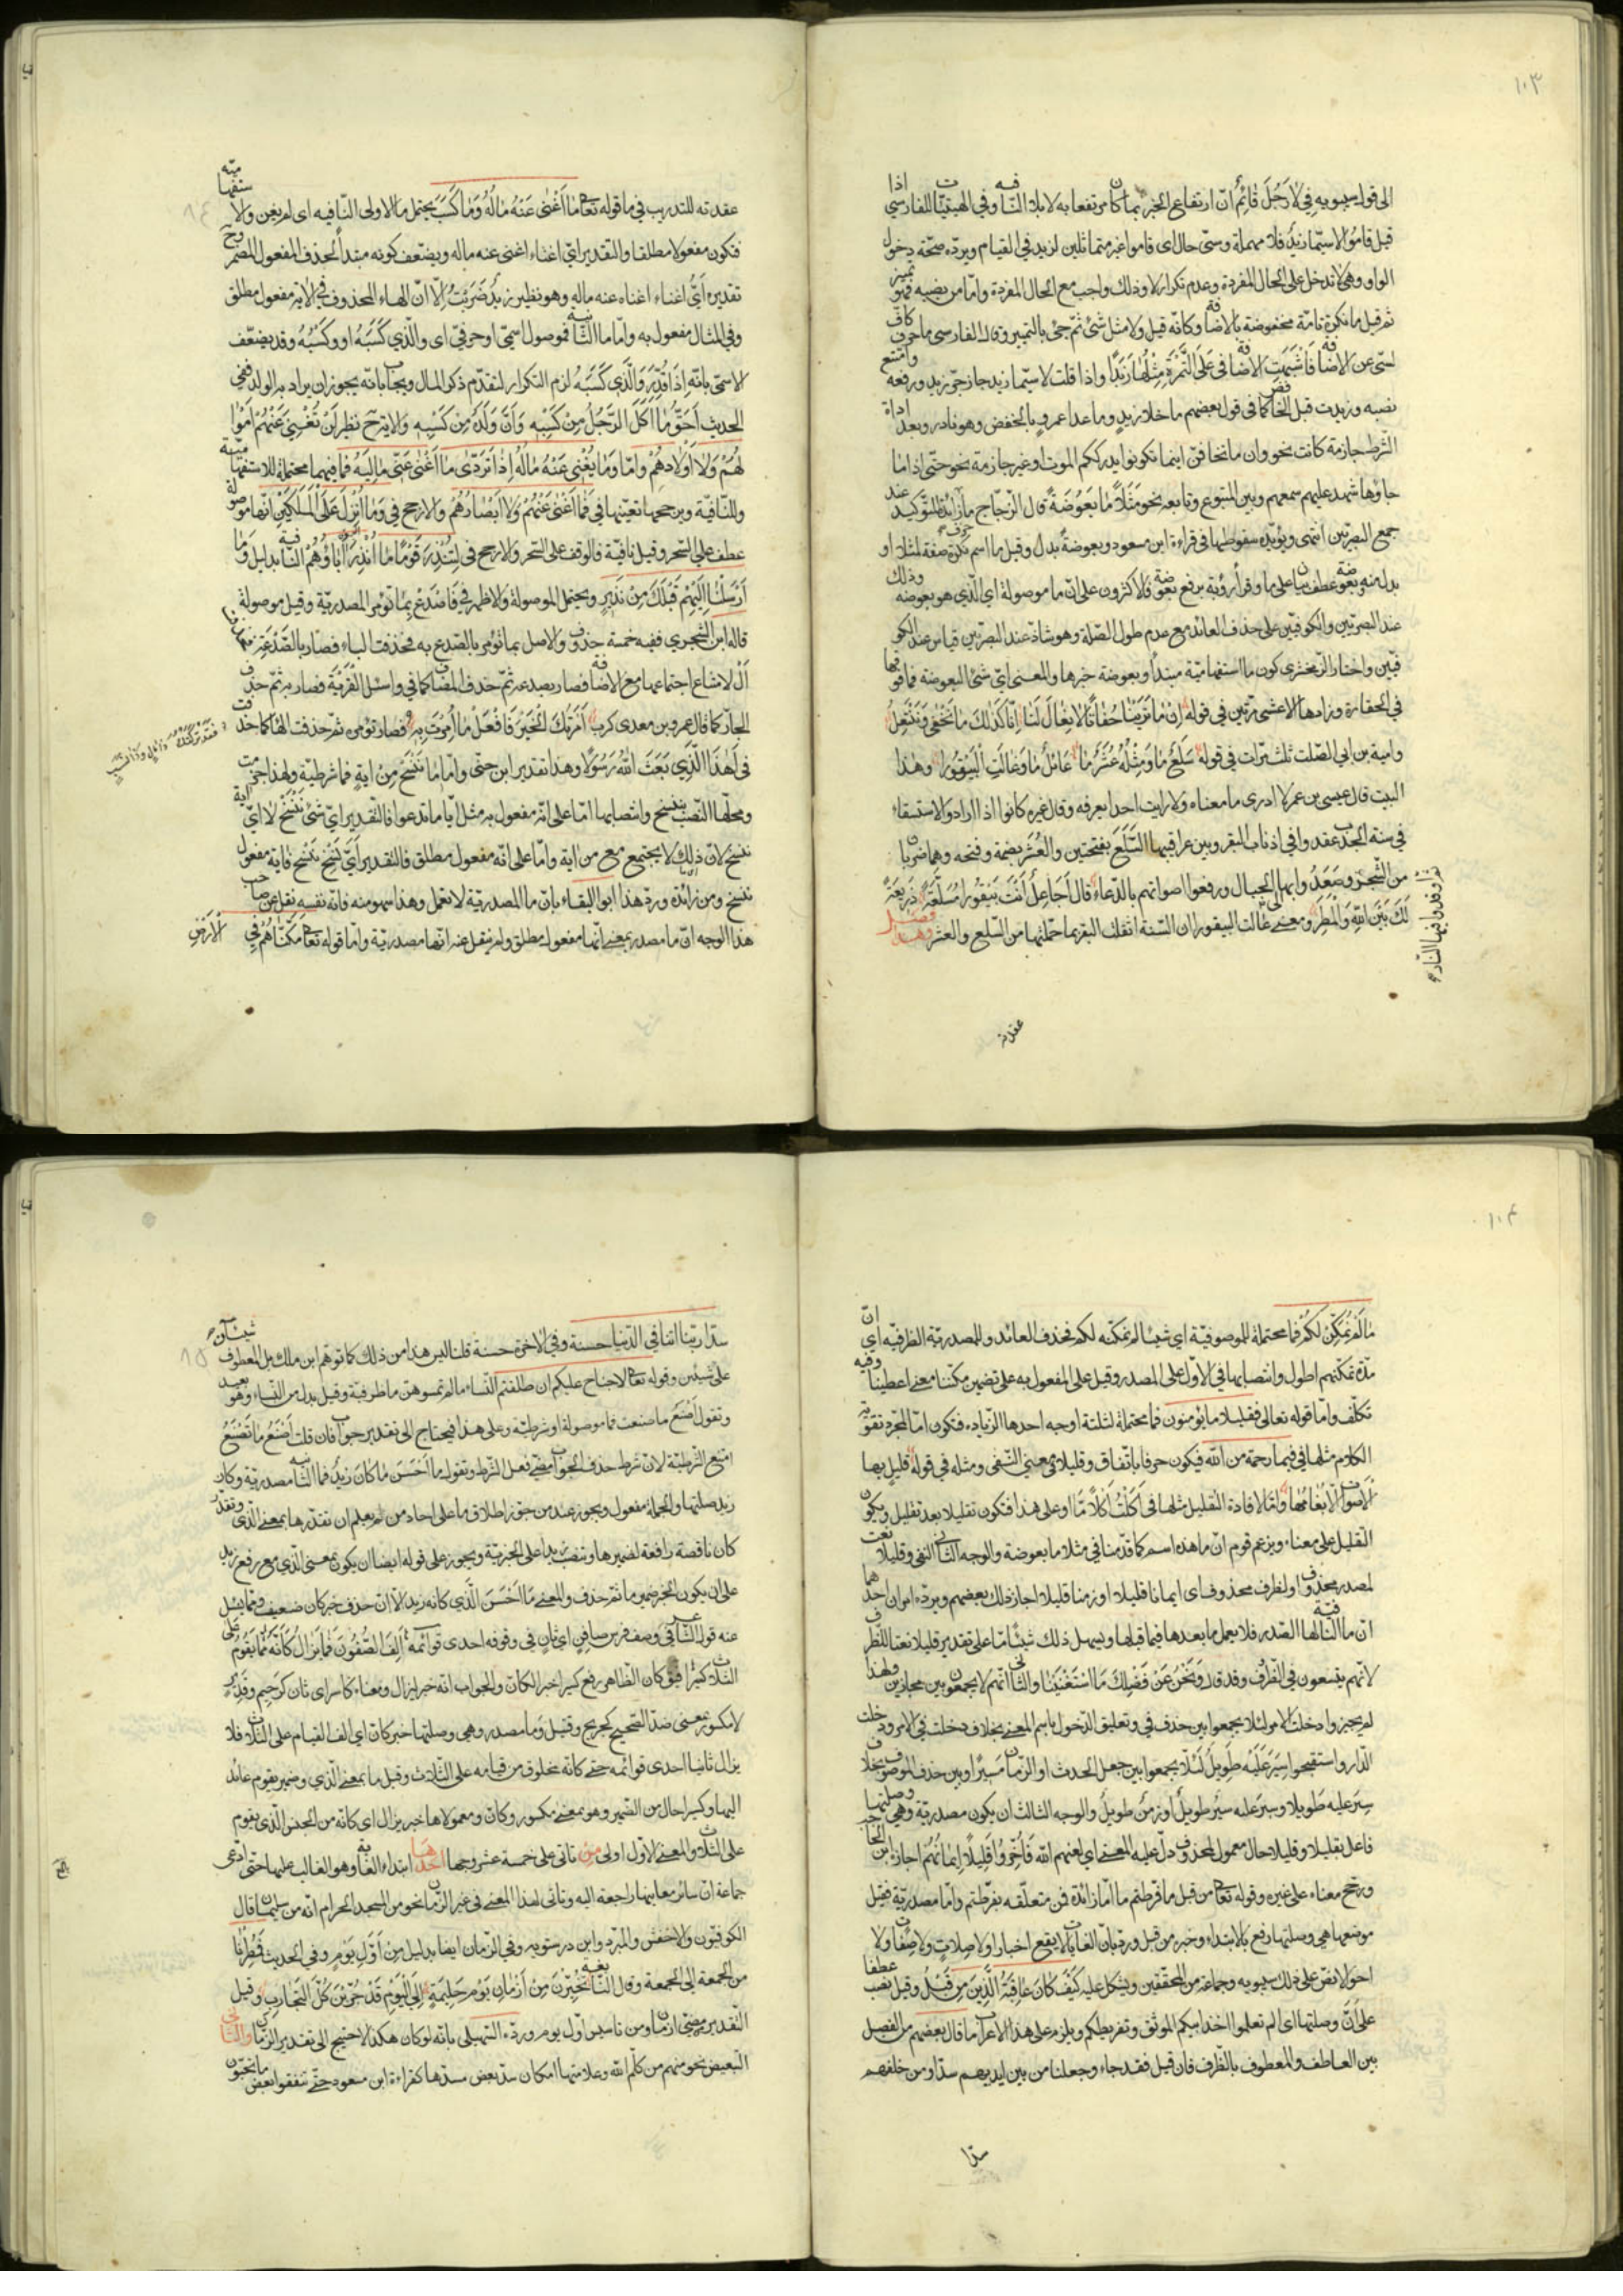 ١٠٣
الى قول سيبويه في لا رجل قائم ان ارتفاع الخبر بما كان مرتفعا به لا بلا النافيه وفي الهيتيات للفارسي اذا
قيل قاموا لا سيما زيد فلا مهملة وسي حال اى قاموا غير مماثلين لزيد في القيام ويرده صحة دخول
الواو وهي لا تدخل على الحال المفردة وعدم تكرار لا وذلك واجب مع الحال المفردة واما من نصبه فهو تمييز
ثم قيل ما نكرة تامة مخفوضة بالاضافة وكانه قيل ولا مثل شئ ثم جئ بالتمييز وقال الفارسى ما حرف كاف
لسى عن الاضافة فاشبهت الاضافة في على التمرة مثلها زبدا واذا قلت لا سيما زيد جاز جر زيد ورفعه وامتنع
نصبه وزيدت قبل الخافض كما في قول بعضهم ما خلا زيد وما عدا عمرو بالخفض وهو نادر وبعد اداة
الشرط جازمة كانت نحو وان ما تخافن اينما تكونوا يدرككم الموت او غير جازمة نحو حتى اذا ما
جاؤها شهد عليهم سمعهم وبين المتبوع وتابعه نحو مثلا ما بعوضة قال الزجاج ما حرف زائد للتوكيد عند
جميع البصريين انتهى ويؤيده سقوطها في قراءة ابن مسعود وبعوضة بدل وقيل ما اسم نكرة صفة لمثلا او
بدل منه وبعوضة عطف بيان على ما وقرأ رؤبة برفع بعوضة فالاكثرون على ان ما موصولة اى الذي هو بعوضة وذلك
عند البصريين والكوفيين على حذف العائد مع عدم طول الصلة وهو شاذ عند البصريين قياس عند الكو
فيين واختار الزمخشرى كون ما استفهامية مبتدأ وبعوضة خبرها والمعنى اى شئ البعوضة فما فوقها
في الحقارة وزادها الاعشى مرتين فى قوله اما ترينا حفاة لا نعال لنا انا كذلك ما نحفى وننتعل
وامية بن ابي الصلت ثلث مرات في قوله سلع ما ومثله عشر ما عائل ما وعالت البيقورا وهذا
البيت قال عيسى بن عمر لا ادرى ما معناه ولا رايت احدا يعرفه وقال غيره كانوا اذا ارادوا الاستسقاء
في سنة الجدب عقدوا في اذناب البقر وبين عراقيبها السلع بفتحتين والعشر بضمة وفتحه وهما ضربان
من الشجر وصعدوا بها الجبال ورفعوا اصواتهم بالدعاء قال اجاعل انت بيقورا مسلعة ذريعة
لك بين الله والمطر ومعنى عالت البيقورا ان السنة اثقلت البقر بما حملتها من السلع والعشر وهذا فصل
ثم اوقدوا فيها النار
عقدته
عقدته للتدريب في ما قوله تعالى ما اغنى عنه ماله وما كسب يحتمل ما الاولى النافيه اى لم يغن والاستفهامية
فتكون مفعولا مطلقا والتقدير اى اغناء اغنى عنه ماله ويضعف كونه مبتدأ لحذف المفعول المضمر ح
تقديره اى اغناء اغناه عنه ماله وهو نظير زيد ضربت الا ان الهاء المحذوف في الايه مفعول مطلق
وفي المثال مفعول به واما ما الثانية فموصول اسمي او حرفي اى والذي كسبه او وكسبه وقد يضعف
الاسمى بانه اذا قدر والذي كسبه لزم التكرار لتقدم ذكر المال ويجاب بانه يجوز ان يراد به الولد ففي
الحديث احق ما اكل الرجل من كسبه وان ولده من كسبه والارجح نظير لن تغنى عنهم اموا
لهم ولا اولادهم واما وما يغنى عنه ماله اذا تردى ما اغنى عنى ماليه فما فيهما محتملة للاستفهامية
وللنافية ويرجحها تعينها في فما اغنى عنهم ولا ابصارهم والارجح في وما انزل على الملكين انها موصولة
عطف على السحر وقيل نافية فالوقف على السحر والارجح في لتنذر قوما ما انذر اباؤهم النافية بدليل وما
ارسلنا اليهم قبلك من نذير ويحتمل الموصولة والاظهر في فاصدع بما تؤمر المصدرية وقيل موصولة
قاله ابن الشجري ففيه خمسة حذوف والاصل بما تؤمر بالصدع به فحذفت الباء فصار بالصدعه فحذفت
ال لامتناع اجتماعها مع الاضافة فصار بصدعه ثم حذف المضاف كما في واسئل القرية فصار به ثم حذف
الجار كما قال عمرو بن معدى كرب امرتك الخير فافعل ما امرت به فصار تؤمره ثم حذفت الهاء كما حذفت
فقد تركتك ذا مال وذا نشب
في اهذا الذي بعث الله رسولا وهذا تقدير ابن جنى واما ما ننسخ من اية فما شرطية ولهذا جزمت
ومحلها النصب بننسخ وانتصابها اما على انه مفعول به مثل ايا ما تدعوا فالتقدير اى شئ ننسخ لا اى اية
ننسخ لان ذلك لا يجتمع مع من اية واما على انه مفعول مطلق فالتقدير اى نسخ ننسخ فاية مفعول
ننسخ ومن زائدة ورد هذا ابو البقاء بان ما المصدرية لا تعمل وهذا سهو منه فانه نفسه نقل عن صاحب
هذا الوجه ان ما مصدر بمعنى انها مفعول مطلق ولم ينقل عنه انها مصدرية واما قوله تعالى مكناهم في الارض
١٠٤
ما لم نمكن لكم فما محتملة للموصوفية اى شيئا لم نمكنه لكم فحذف العائد وللمصدرية الظرفيه اى ان
مدة تمكنهم اطول وانتصابها في الاول على المصدر وقيل على المفعول به على تضمين مكنا معنى اعطينا وفيه
تكلف واما قوله تعالى فقليلا ما يؤمنون فما محتملة لثلثة اوجه احدها الزيادة فتكون اما لمجرد تقوية
الكلام مثلها في فيما رحمة من الله فيكون حرفا باتفاق وقليلا في معنى النفى ومثله في قوله قليل بها
الاصوات الا بغامها واما لافادة التقليل مثلها في اكلت اكلا ما وعلى هذا فتكون تقليلا بعد تقليل ويكون
التقليل على معناه ويزعم قوم ان ما هذه اسم كما قدمنا في مثلا ما بعوضة والوجه الثانى النفى وقليلا نعت
لمصدر محذوف او لظرف محذوف اى ايمانا قليلا او زمنا قليلا اجاز ذلك بعضهم ويرده امران احدهما
ان ما النافية لها الصدر فلا يعمل ما بعدها فيما قبلها ويسهل ذلك شيئا ما على تقدير قليلا نعتا للظرف
لانهم يتسعون في الظرف وقد قال ونحن عن فضلك ما استغنينا والثانى انهم لا يجمعون بين مجازين ولهذا
لم يجيزوا دخلت الامر لئلا يجمعوا بين حذف في وتعليق الدخول باسم المعنى بخلاف دخلت في الامر ودخلت
الدار واستقبحوا سير عليه طويل لئلا يجمعوا بين جعل الحدث او الزمان مسيرا وبين حذف الموصوف بخلاف
سير عليه طويلا وسير عليه سير طويل او زمن طويل والوجه الثالث ان يكون مصدرية وهي وصلتها
فاعل بقليلا وقليلا حال معمول لمحذوف دل عليه المعنى اى لعنهم الله فاخروا قليلا ايمانهم اجازه ابن الحاجب
ورجح معناه على غيره وقوله تعالى من قبل ما فرطتم ما اما زائدة فمن متعلقه بفرطتم واما مصدرية فقيل
موضعها هي وصلتها رفع بالابتداء وخبره من قبل ورد بان الغايات لا يقع اخبارا ولا صلات ولا صفات ولا
احوالا نص على ذلك سيبويه وجماعة من المحققين ويشكل عليه كيف كان عاقبة الذين من قبل وقيل نصب عطفا
على ان وصلتها اى الم تعلموا اخذ ابيكم الموثق وتفريطكم ويلزم على هذا الاعراب ما قال بعضهم من الفصل
بين العاطف والمعطوف بالظرف فان قيل فقد جاء وجعلنا من بين ايديهم سدا ومن خلفهم
سدا
سدا ربنا اتنا في الدنيا حسنة وفي الاخرة حسنة قلنا ليس هذا من ذلك كما توهم ابن ملك بل المعطوف شيئان
على شيئين وقوله تعالى لا جناح عليكم ان طلقتم النساء ما لم تمسوهن ما ظرفية وقيل بدل من النساء وهو بعيد
وتقول اصنع ما صنعت فما موصولة او شرطية وعلى هذا فيحتاج الى تقدير جواب فان قلت اصنع ما تصنع
امتنع الشرطية لان شرط حذف الجواب مضى فعل الشرط وتقول ما احسن ما كان زيد فما الثانية مصدرية وكان
زيد صلتها والجملة مفعول ويجوز عند من جوز اطلاق ما على احاد من يعلم ان تقدرها بمعنى الذى وتقدر
كان ناقصة رافعة لضميرها وتنصب زيدا على الخبرية ويجوز على قوله ايضا ان يكون بمعنى الذي مع رفع زيد
على ان يكون الخبر ضمير ما ثم حذف والمعنى ما احسن الذي كانه زيد الا ان حذف خبر كان ضعيف ومما يسأل
عنه قول الشاعر في وصف فرس صافن اى ثان في وقوفه احدى قوائمه الف الصفون فما يزال كانه مما يقوم على
الثلاث كسيرا فيق كان الظاهر رفع كسيرا خبرا لكان والجواب انه خبر ليزال ومعناه كاسر اى ثان كرحيم وقدير
لا مكسور بمعنى ضد الصحيح كجريح وقتيل وما مصدر وهي وصلتها خبر كان اى الف القيام على الثلاث فلا
يزال ثانيا احدى قوائمه حتى كانه مخلوق من قيامه على الثلاث وقيل ما بمعنى الذي وضمير يقوم عائد
اليها وكسيرا حال من الضمير وهو بمعنى مكسور وكان ومعمولاها خبر يزال اى كانه من الجنس الذي يقوم
على الثلاث والمعنى الاول اولى من تاتى على خمسة عشر وجها احدها ابتداء الغاية وهو الغالب عليها حتى ادعى
جماعة ان سائر معانيها راجعة اليه وتاتى لهذا المعنى في غير الزمان نحو من المسجد الحرام انه من سليمان قال
الكوفيون والاخفش والمبرد وابن درستويه وفي الزمان ايضا بدليل من اول يوم وفي الحديث فمطرنا
من الجمعة الى الجمعة وقال النابغة تخيرن من ازمان يوم حليمة الى اليوم قد جربن كل التجارب وقيل
التقدير من مضى ازمان ومن تاسيس اول يوم ورده السهيلى بانه لو كان هكذا لاحتيج الى تقدير الزمان والثانى
التبعيض نحو منهم من كلم الله وعلامتها امكان سد بعض مسدها كقراءة ابن مسعود حتى تنفقوا بعض ما تحبون